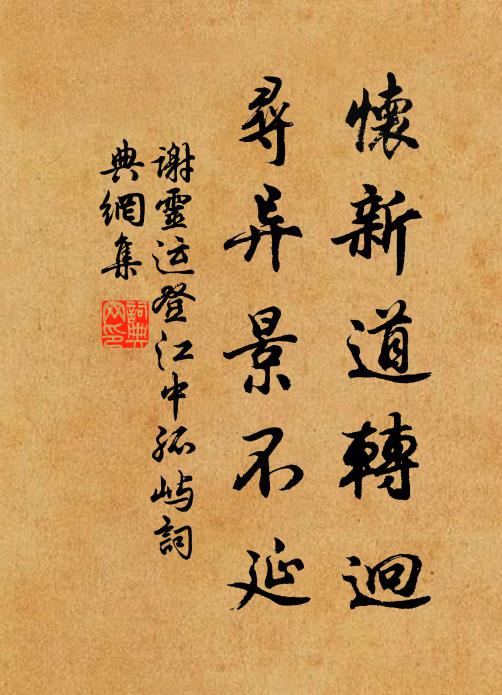 懷新道轉迴
尋异景不延
謝靈运登江中孤屿詞
典網集
詞典
网印